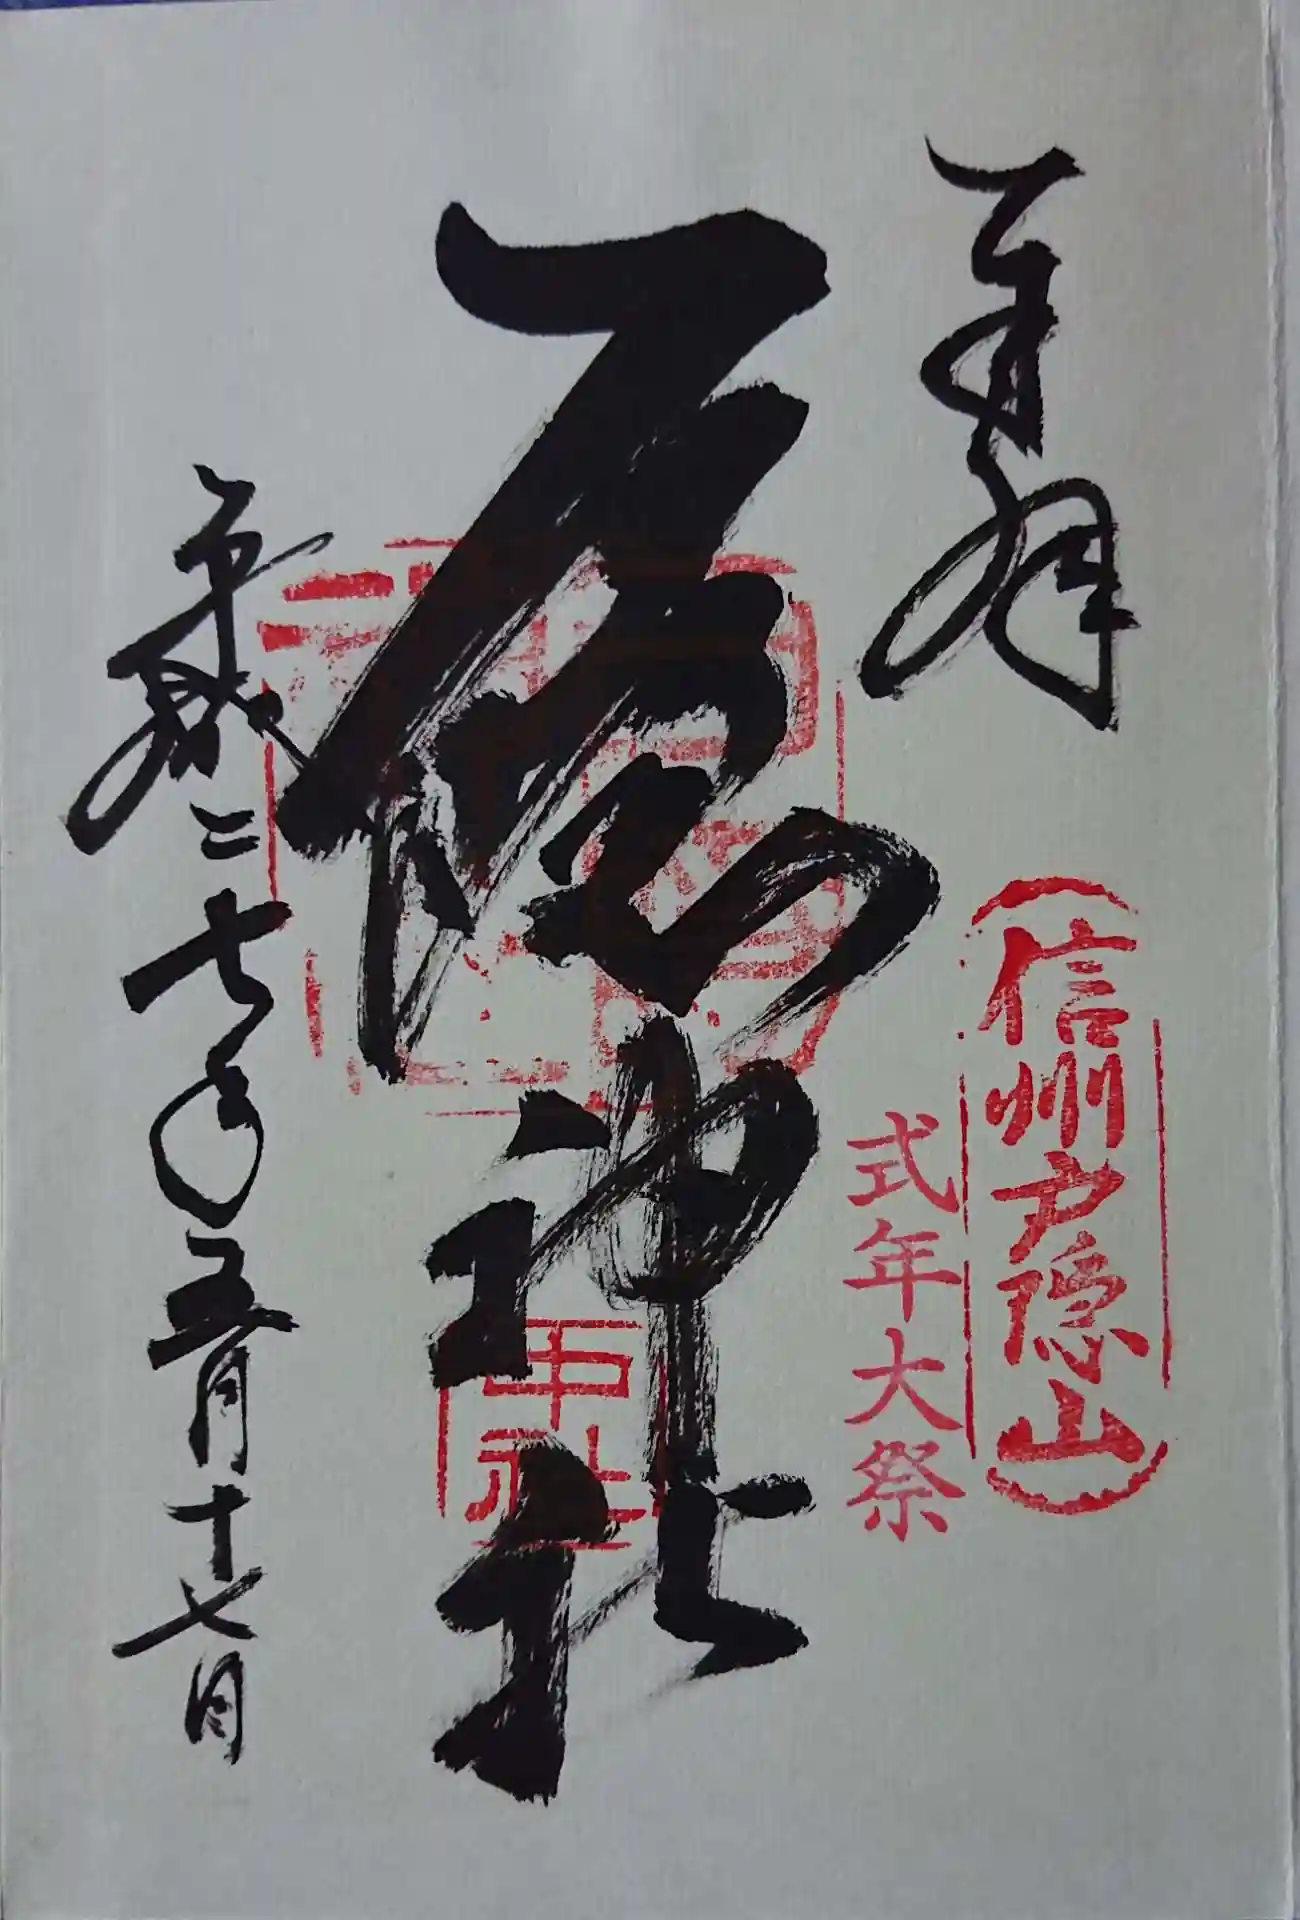 奉拝
信州戸隠山
式年大祭
戸隠神社
中社
平成二七年五月十七日